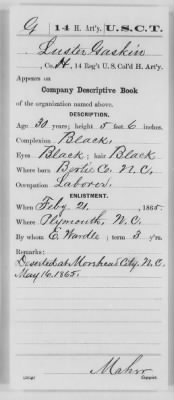 G | 14 H. Art'y. | U.S.C.T.
Luster Gaskin
, Co. H, 14 Reg't U. S. Col'd H. Art'y.
Appears on
Company Descriptive Book
of the organization named above.
DESCRIPTION.
Age 30 years; height 5 feet 6 inches.
Complexion Black
Eyes Black; hair Black
Where born Bertie Co. N.C.
Occupation Laborer
ENLISTMENT.
When Feby 21, 1865.
Where Plymouth, N.C.
By whom E. Wardle; term 3 y'rs.
Remarks:
Deserted at Morehead City, N.C.
May 16, 1865.
Copyist.